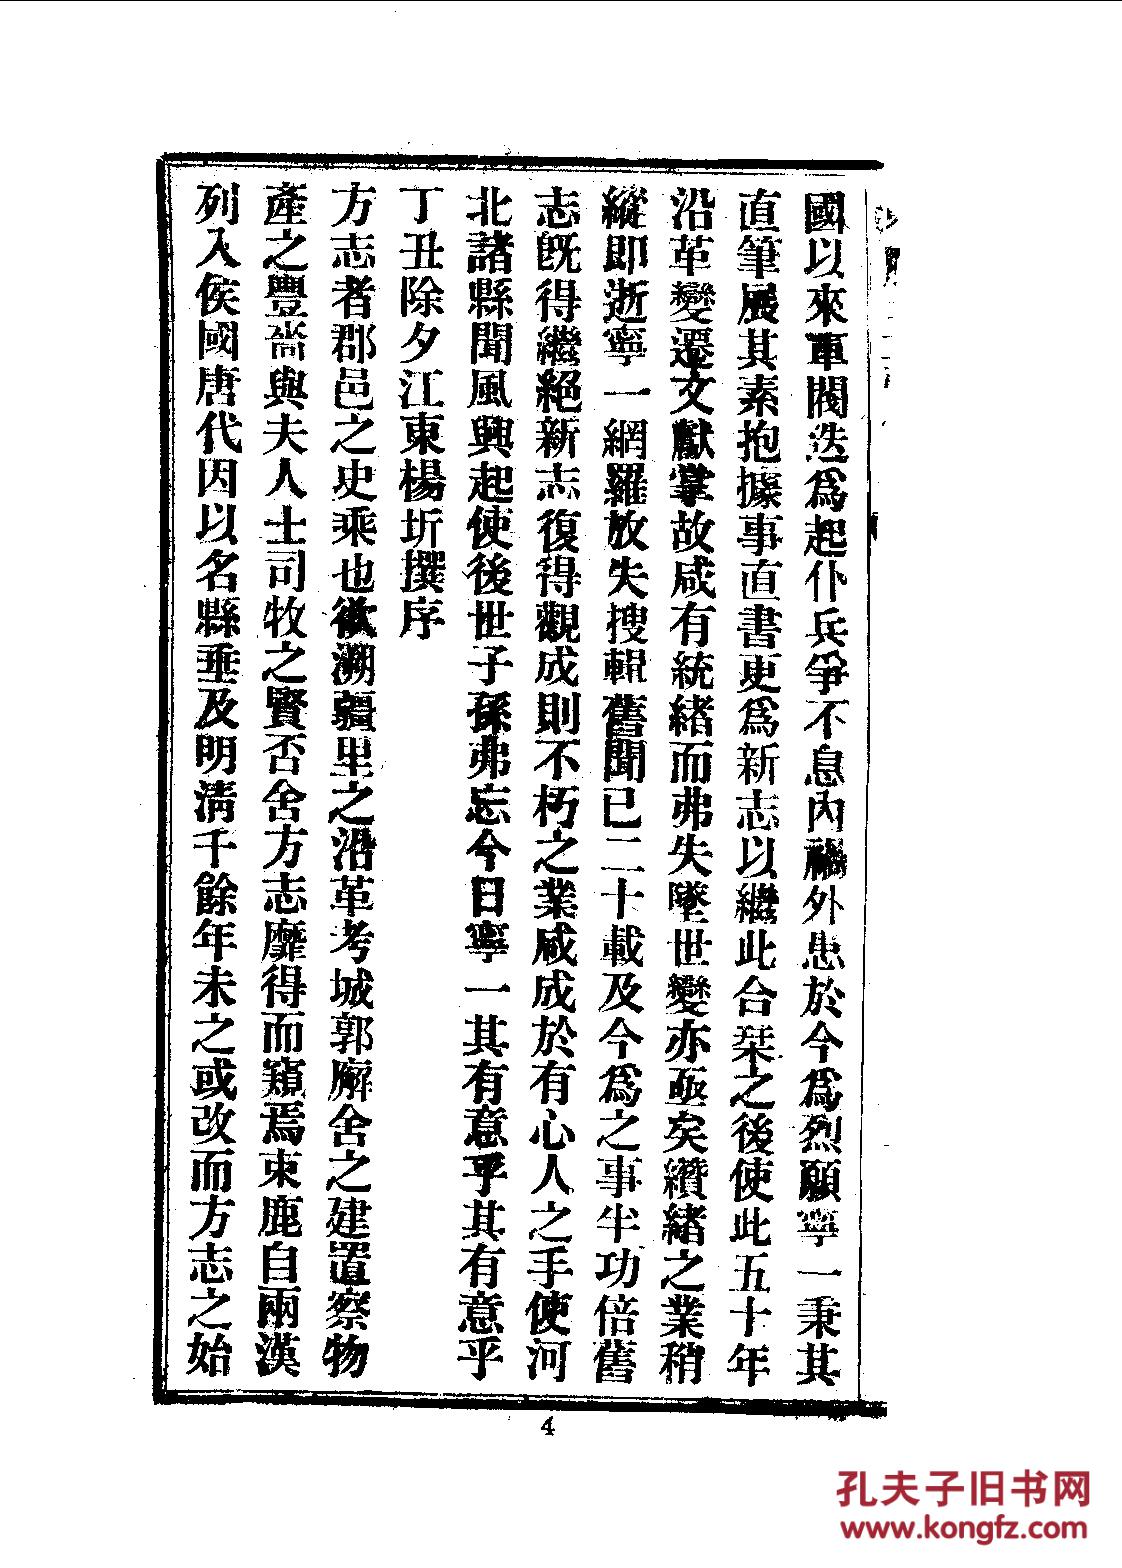 國以來軍閥迭爲起仆兵爭不息內禍外患於今爲烈願寧一秉其
直筆展其素抱據事直書更爲新志以繼此合栞之後使此五十年
沿革變遷文獻掌故咸有統緒而弗失墜世變亦亟矣纘緒之業稍
縱即逝寧一網羅放失搜輯舊聞已二十載及今爲之事半功倍舊
志旣得繼絕新志復得觀成則不朽之業咸成於有心人之手使河
北諸縣聞風興起使後世子孫弗忘今日寧一其有意乎其有意乎
丁丑除夕江東楊圻撰序
方志者郡邑之史乘也欲溯疆里之沿革考城郭廨舍之建置察物
產之豐嗇與夫人士司牧之賢否舍方志靡得而窺焉束鹿自兩漢
列入侯國唐代因以名縣垂及明清千餘年未之或改而方志之始
4
孔夫子旧书网
www.kongfz.com